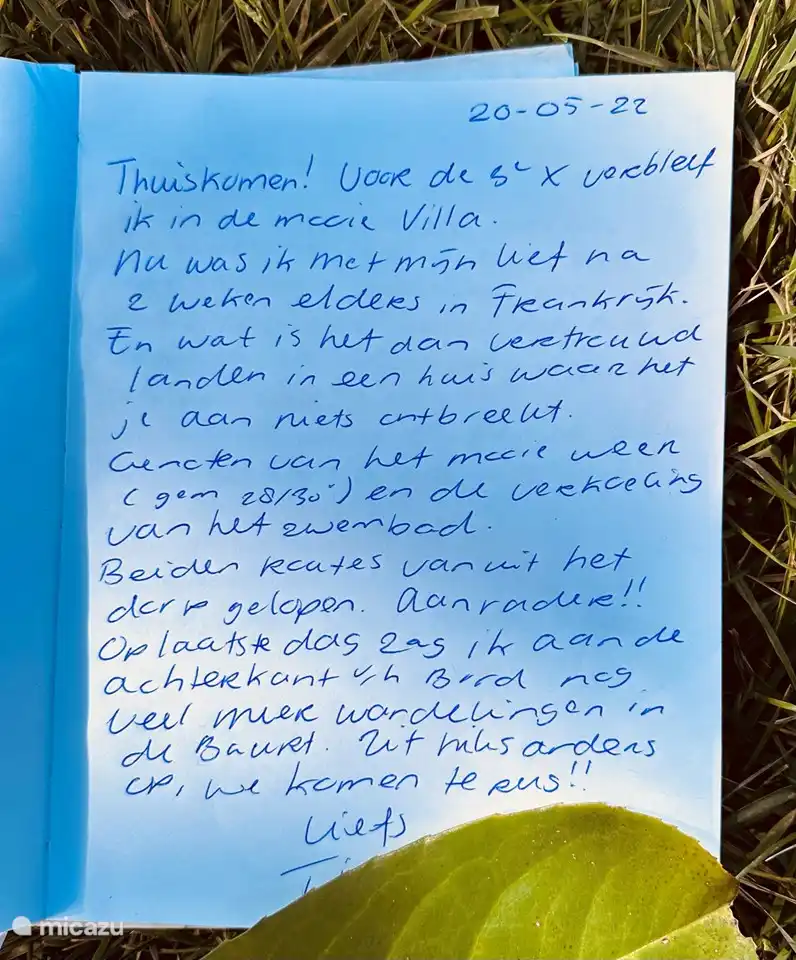 20-05-22
Thuiskomen! Voor de 3e X verbleef
ik in de mooie Villa.
Nu was ik met mijn lief na
2 weken elders in Frankrijk.
En wat is het dan vertrouwd
landen in een huis waar het
je aan niets ontbreekt.
Genoten van het mooie weer
(gem 28/30°) en de verkoeling
van het zwembad.
Beiden routes vanuit het
dorp gelopen. Aanrader!!
Op laatste dag zag ik aan de
achterkant v/h Bord nog
veel meer wandelingen in
de Buurt. Zit niks anders
op, we komen terug!!
Liefs
micazu